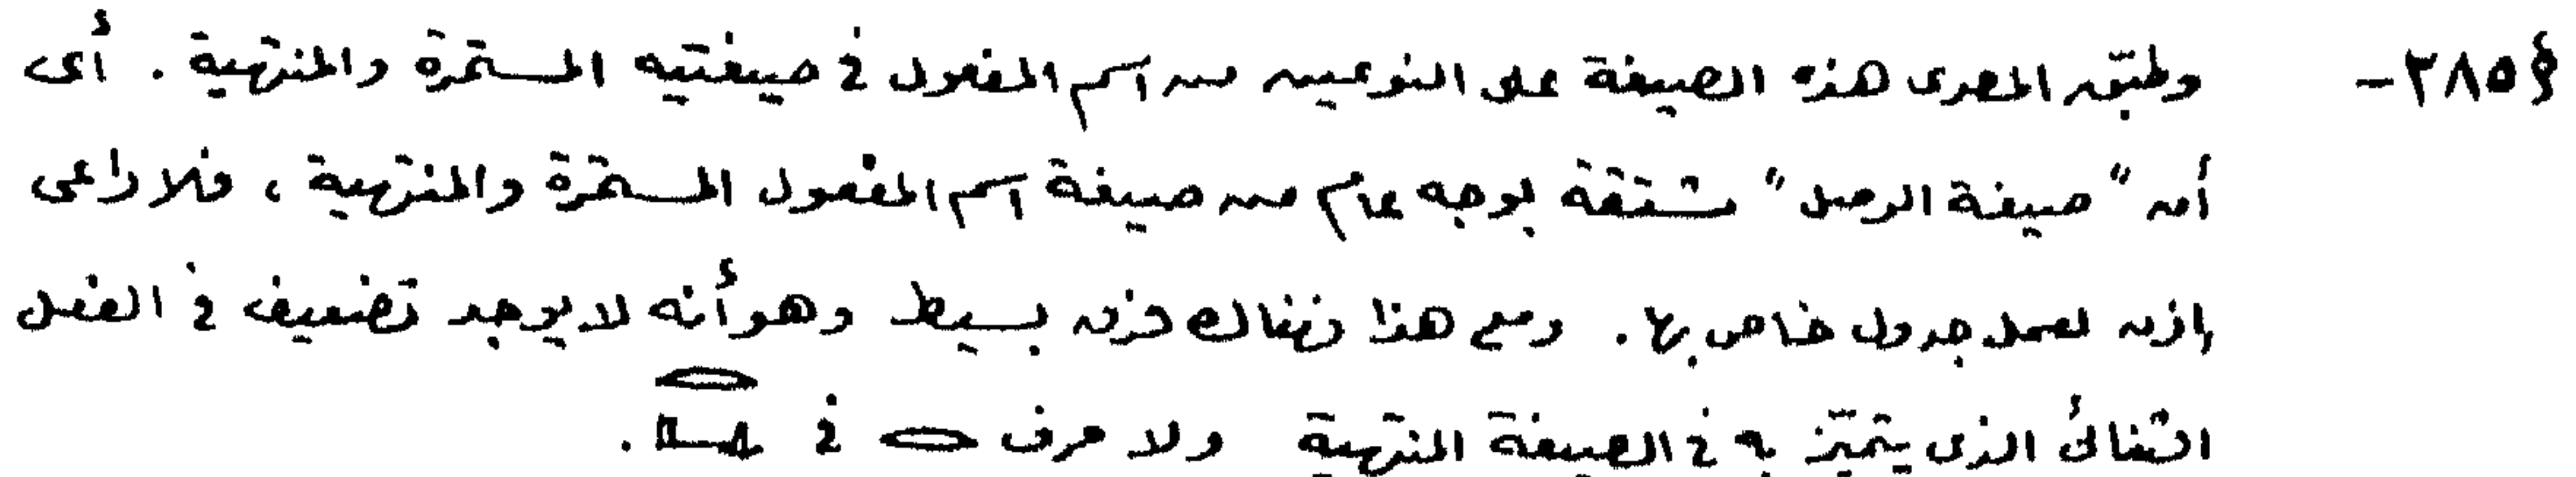 § ٣٨٥ - وطبّق المصرى هذه الصيغة على النوعين من اسم المفعول فى صيغتيه المستمرة والمنتهية . أى
أن " صيغة الوصل " مشتقة بوجه عام من صيغة اسم المفعول المستمرة والمنتهية ، فلا داعى
إذن لعمل جدول خاص بها . ومع هذا فهناك فرق بسيط وهو أنه لا يوجد تضعيف فى الفعل
الثنائى الذى يتميّز به فى الصيغة المنتهية ولا حرف 𓂋 فى 𓂋𓂞 .